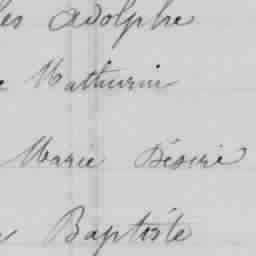 Adolphe
Mathurin
Marie Désiré
Baptiste